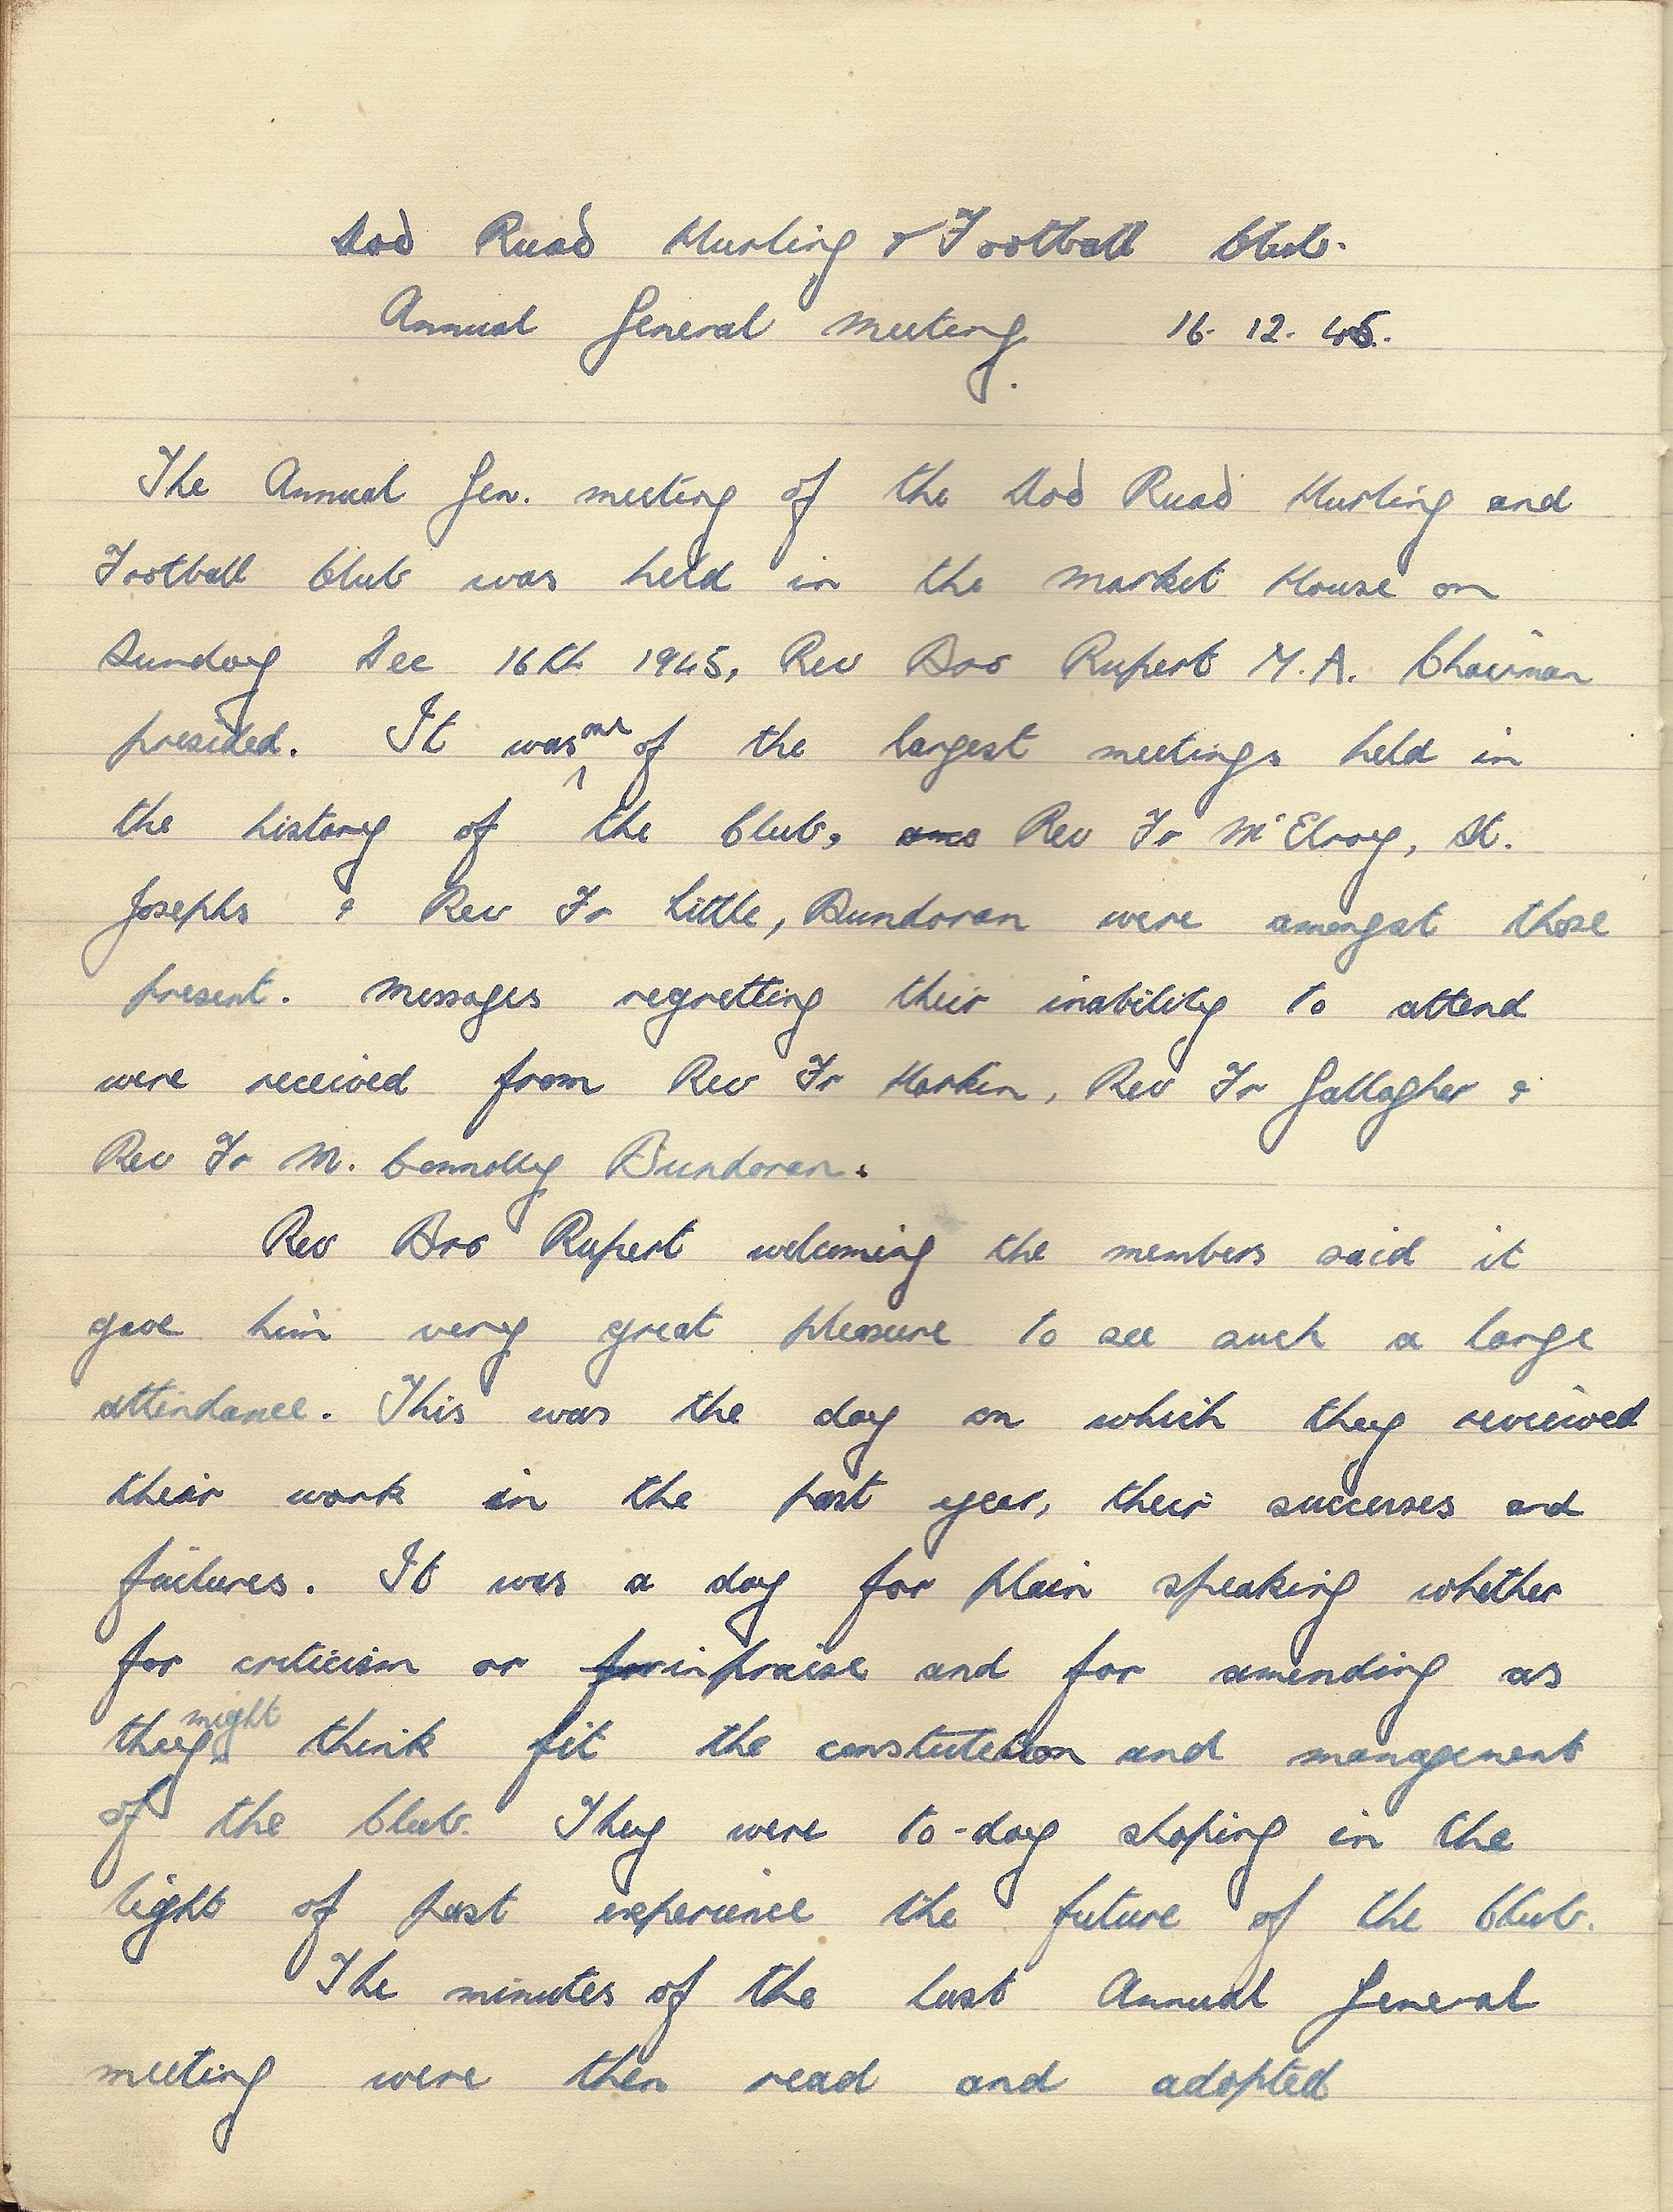 Aod Ruad Hurling & Football Club.
Annual General Meeting 16. 12. 45.
The Annual Gen. meeting of the Aod Ruad Hurling and
Football Club was held in the Market House on
Sunday Dec 16th 1945, Rev Bro Rupert M.A. Chairman
presided. It was one of the largest meetings held in
the history of the Club, Rev Fr McElroy, St.
Josephs & Rev Fr Little, Bundoran were amongst those
present. Messages regretting their inability to attend
were received from Rev Fr Harkin, Rev Fr Gallagher &
Rev Fr M. Connolly Bundoran.
Rev Bro Rupert welcoming the members said it
gave him very great pleasure to see such a large
attendance. This was the day on which they reviewed
their work in the past year, their successes and
failures. It was a day for plain speaking whether
for criticism or in praise and for amending as
they might think fit the constitution and management
of the Club. They were to-day shaping in the
light of past experience the future of the Club.
The minutes of the last Annual General
meeting were then read and adopted